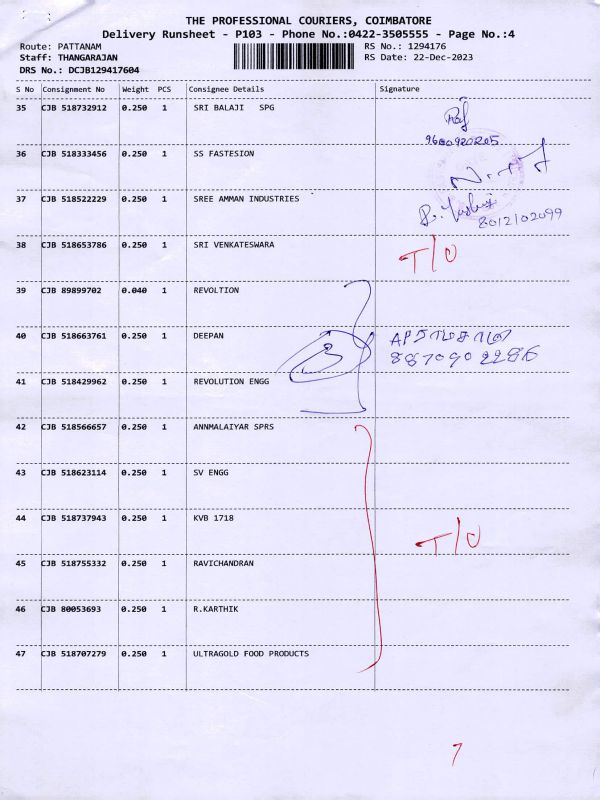 THE PROFESSIONAL COURIERS, COIMBATORE
Delivery Runsheet - P103 - Phone No.:0422-3505555 - Page No.:4
Route: PATTANAM RS No.: 1294176
Staff: THANGARAJAN RS Date: 22-Dec-2023
DRS No.: DCJB129417604
S No Consignment No Weight PCS Consignee Details Signature
35 CJB 518732912 0.250 1 SRI BALAJI SPG
9600920205
36 CJB 518333456 0.250 1 SS FASTESION
37 CJB 518522229 0.250 1 SREE AMMAN INDUSTRIES
8012102099
38 CJB 518653786 0.250 1 SRI VENKATESWARA T/O
39 CJB 89899702 0.040 1 REVOLTION
40 CJB 518663761 0.250 1 DEEPAN
3
8870902286
41 CJB 518429962 0.250 1 REVOLUTION ENGG
42 CJB 518566657 0.250 1 ANNMALAIYAR SPRS
43 CJB 518623114 0.250 1 SV ENGG
44 CJB 518737943 0.250 1 KVB 1718 T/O
45 CJB 518755332 0.250 1 RAVICHANDRAN
46 CJB 80053693 0.250 1 R.KARTHIK
47 CJB 518707279 0.250 1 ULTRAGOLD FOOD PRODUCTS
7